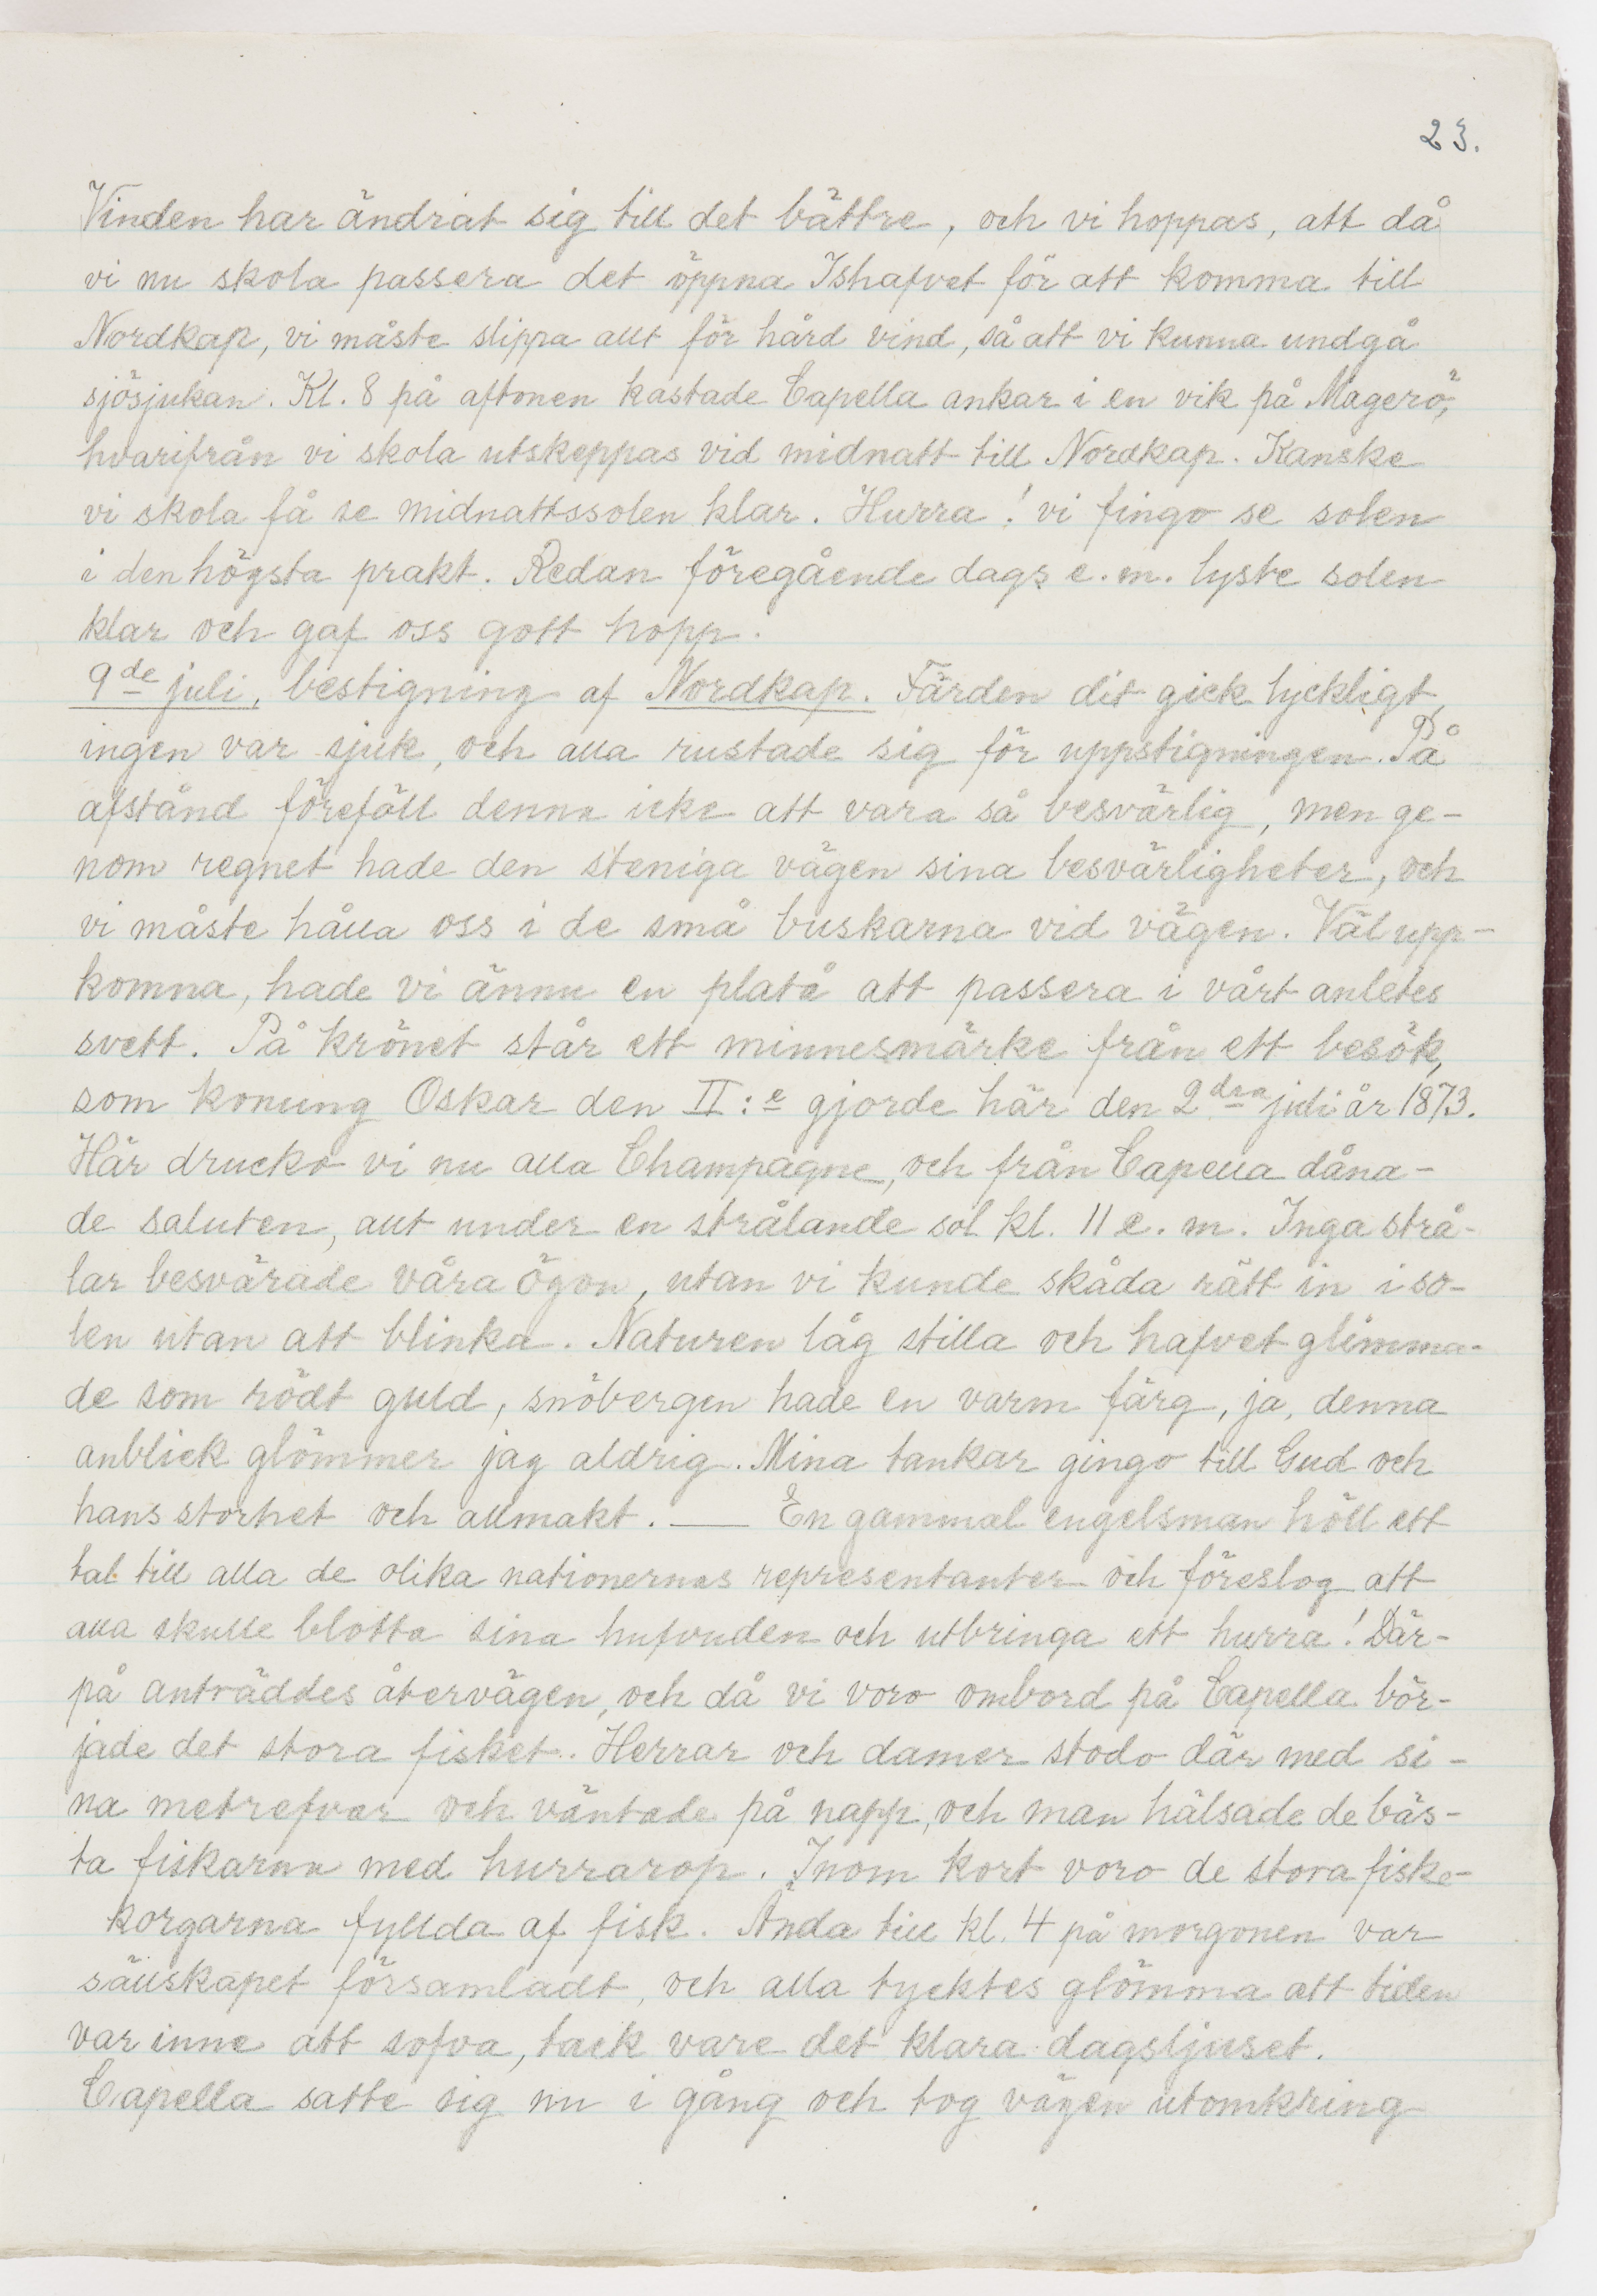 23.
Vinden har ändrat sig till det bättre, och vi hoppas, att då
vi nu skola passera det öppna Ishafvet för att komma till
Nordkap, vi måste slippa allt för hård vind, så att vi kunna undgå
sjösjukan. Kl. 8 på aftonen kastade Capella ankar i en vik på Magerö,
hvarifrån vi skola utskeppas vid midnatt till Nordkap. Kanske
vi skola få se midnattssolen klar. Hurra! vi fingo se solen
i den högsta prakt. Redan föregående dags e.m. lyste solen
klar och gaf oss gott hopp.
9de juli, bestigning af Nordkap. Färden dit gick lyckligt,
ingen var sjuk, och alla rustade sig för uppstigningen. På
afstånd föreföll denna icke att vara så besvärlig, men ge-
nom regnet hade den steniga vägen sina besvärligheter, och
vi måste hålla oss i de små buskarna vid vägen. Väl upp-
komna, hade vi ännu en platå att passera i vårt anletes
svett. På krönet står ett minnesmärke från ett besök,
som konung Oskar den II:e gjorde här den 2dra juli år 1873.
Här drucko vi nu alla Champagne, och från Capella dåna-
de saluten, allt under en strålande sol kl. 11 e.m. Inga strå-
lar besvärade våra ögon, utan vi kunde skåda rätt in i so-
len utan att blinka. Naturen låg stilla och hafvet glimma-
de som rödt guld, snöbergen hade en varm färg, ja, denna
anblick glömmer jag aldrig. Mina tankar gingo till Gud och
hans storhet och allmakt. — En gammal engelsman höll ett
tal till alla de olika nationernas representanter och föreslog att
alla skulle blotta sina hufvuden och utbringa ett hurra! Där-
på anträddes återvägen, och då vi voro ombord på Capella bör-
jade det stora fisket. Herrar och damer stodo där med si-
na metrefvar och väntade på napp, och man hälsade de bäs-
ta fiskarna med hurrarop. Inom kort voro de stora fiske-
korgarna fyllda af fisk. Ända till kl. 4 på morgonen var
sällskapet församladt, och alla tycktes glömma att tiden
var inne att sofva, tack vare det klara dagsljuset.
Capella satte sig nu i gång och tog vägen utomkring